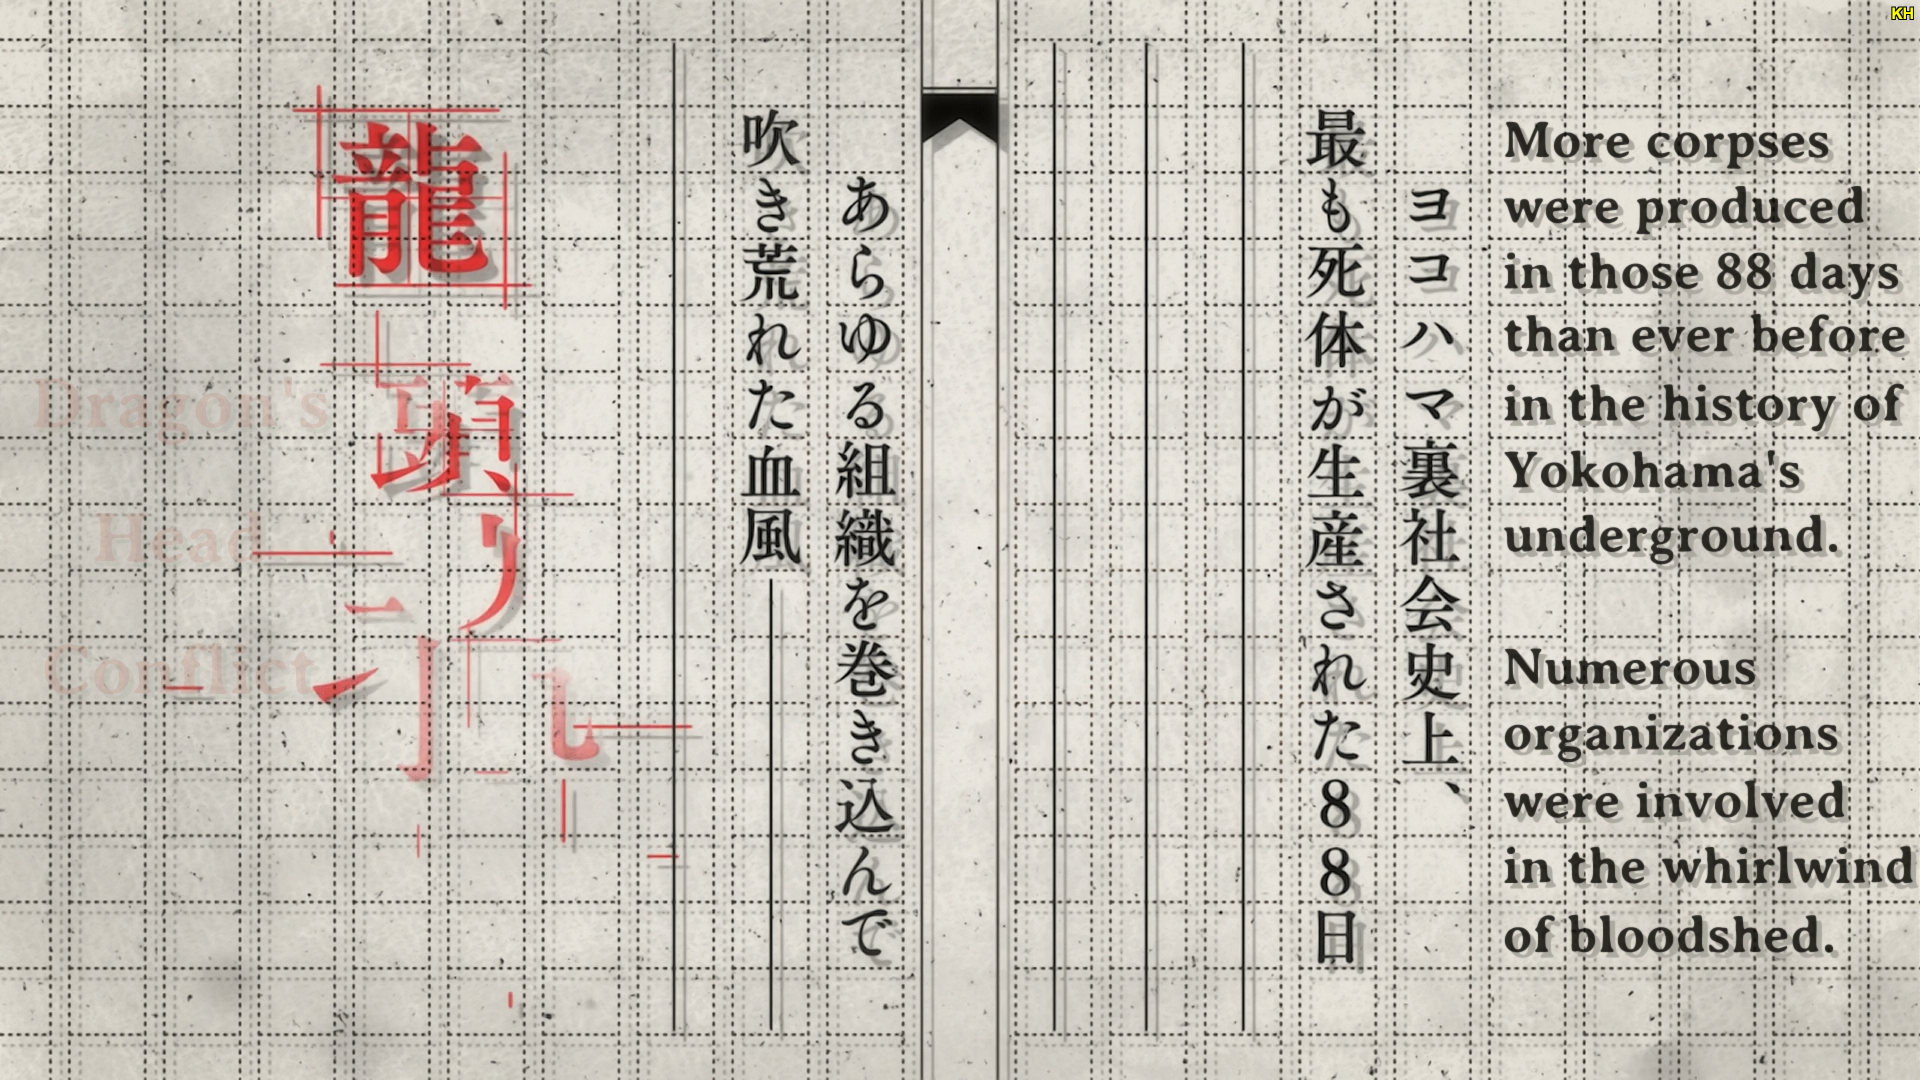 KH
More corpses
were produced
in those 88 days
than ever before
in the history of
Yokohama's
underground.
Numerous
organizations
were involved
in the whirlwind
of bloodshed.
ヨコハマ裏社会史上、
最も死体が生産された88日
あらゆる組織を巻き込んで
吹き荒れた血風――
龍頭
Dragon's
Head
Conflict